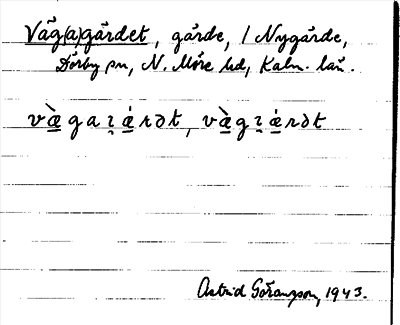 Väg(a)gärdet, gärde, / Nygärde,
Dörby sn, N. Möre hd, Kalm. län.
væ̀gaɪǽrdət, væ̀gɪǽrdət
Astrid Göransson, 1943.